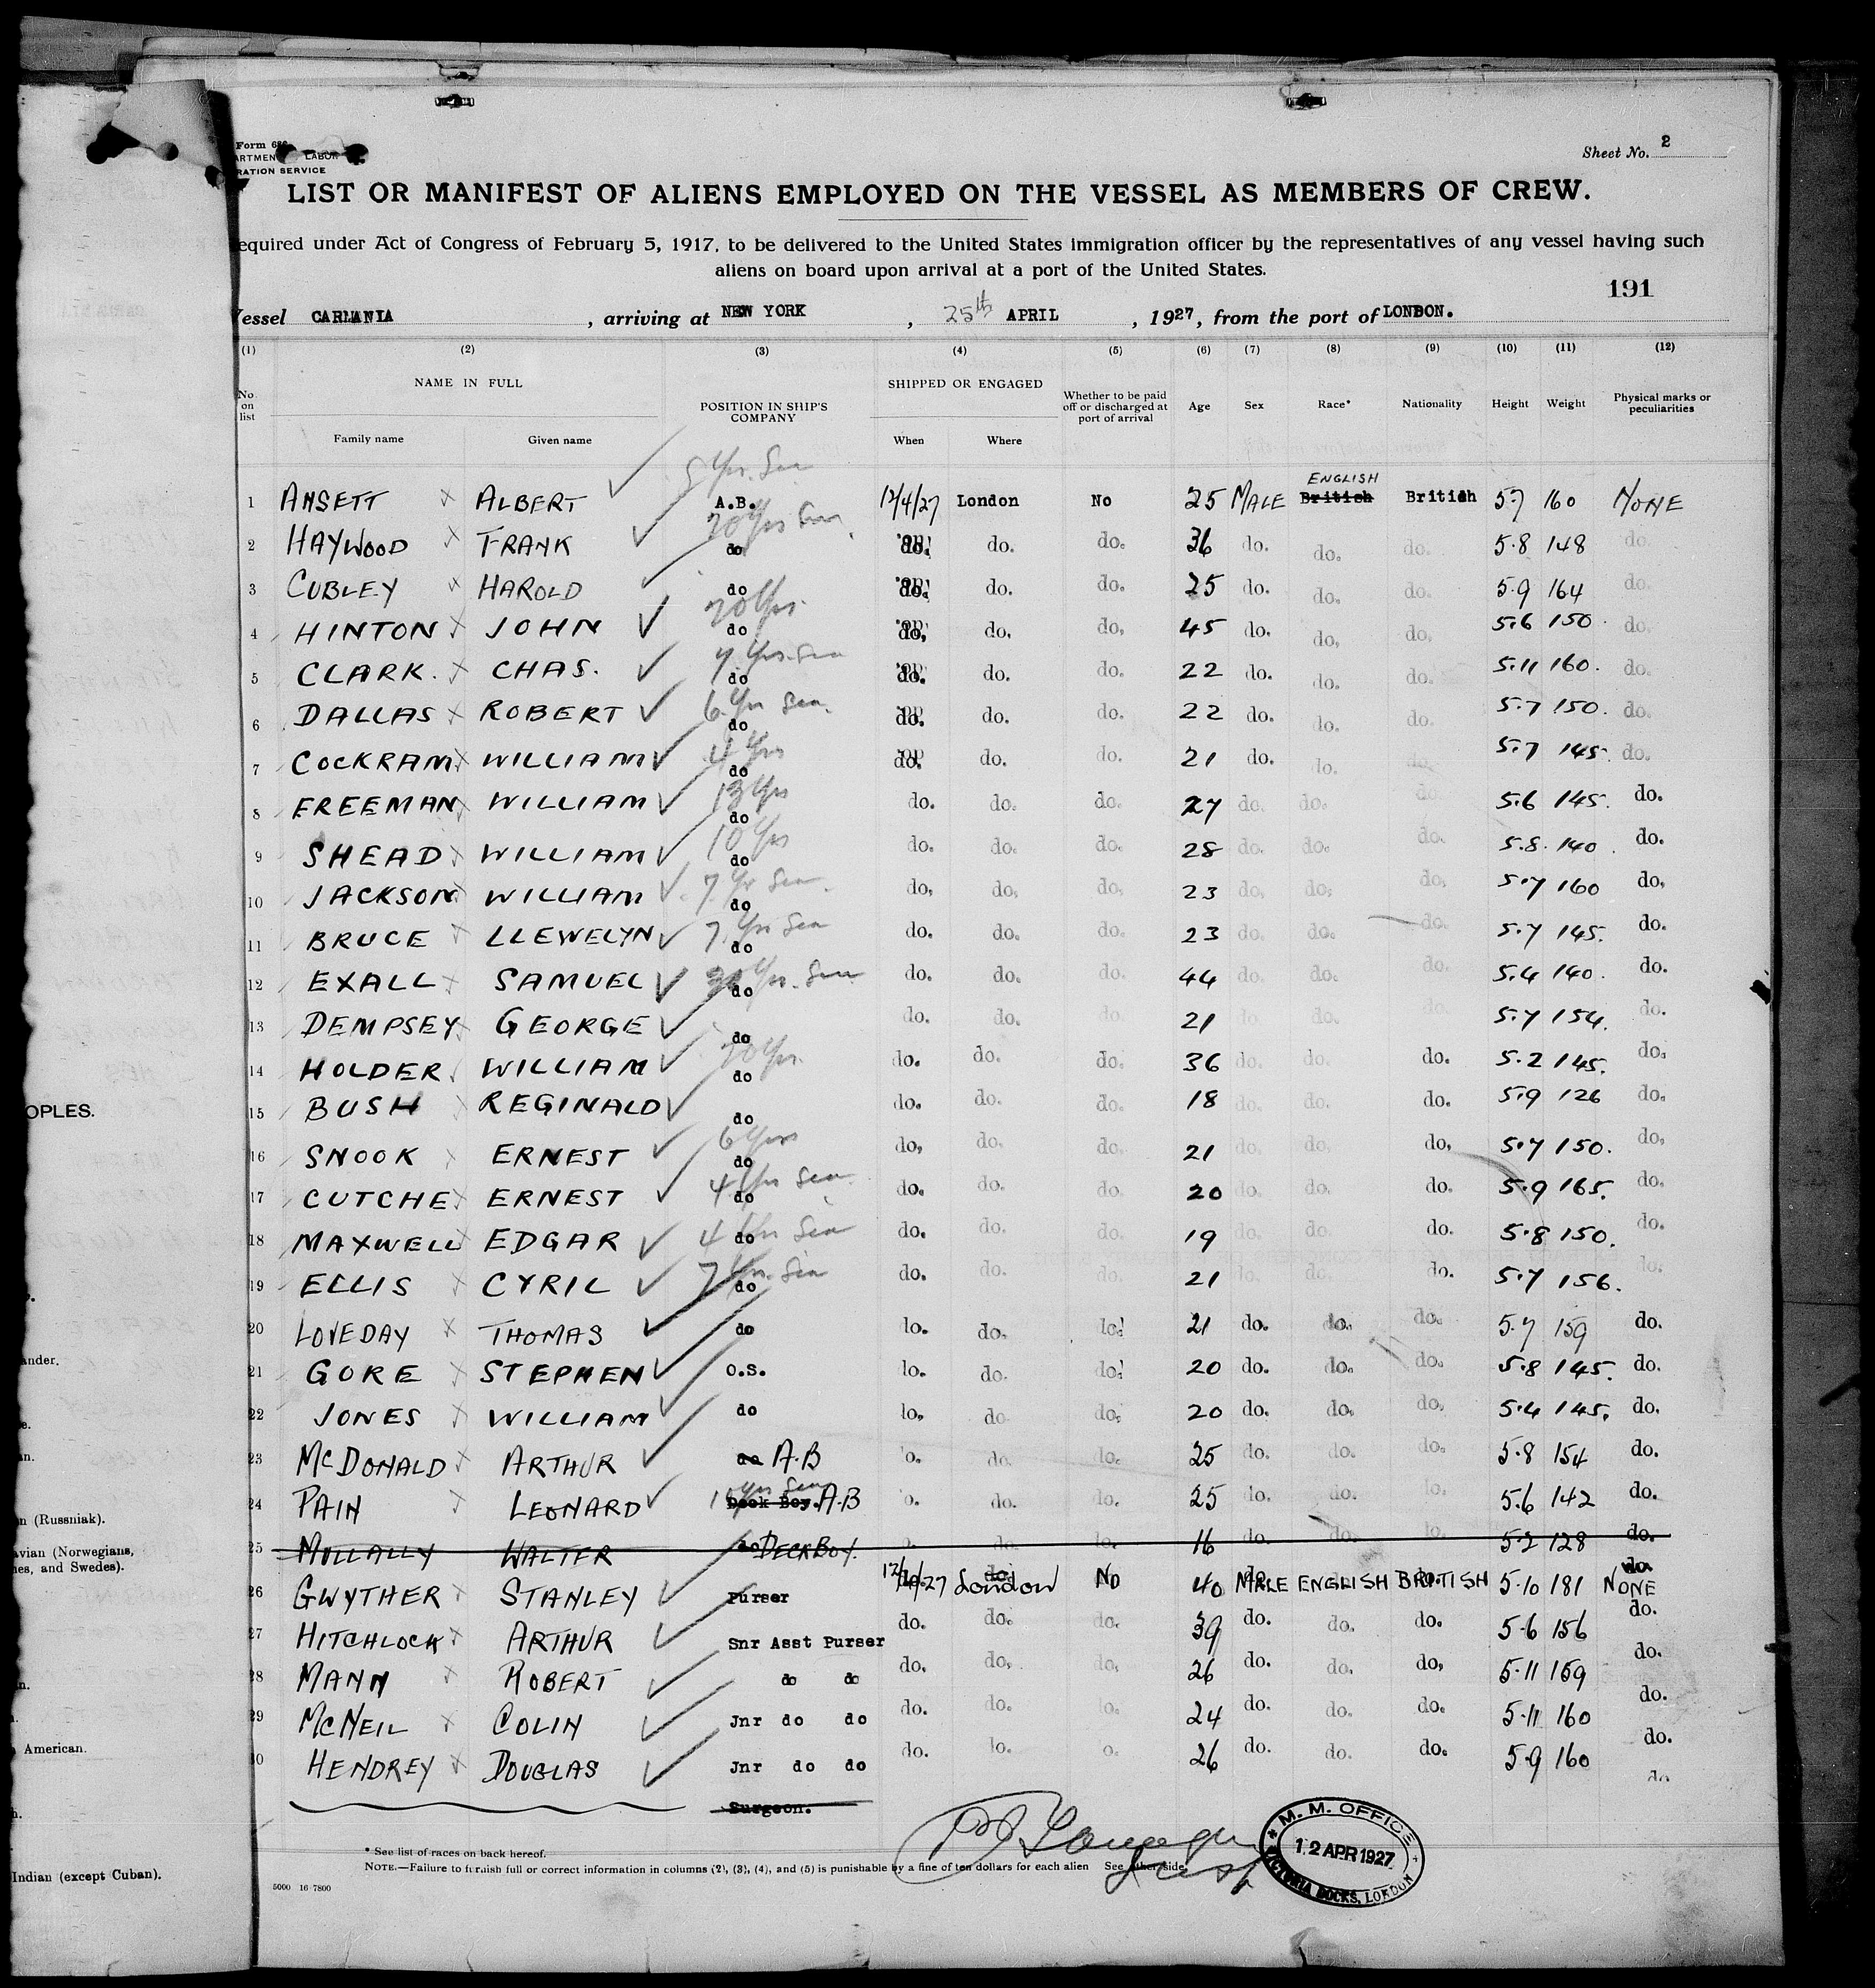 Form 686
ARTMENT LABOR
RATION SERVICE
Sheet No. 2
LIST OR MANIFEST OF ALIENS EMPLOYED ON THE VESSEL AS MEMBERS OF CREW.
equired under Act of Congress of February 5, 1917, to be delivered to the United States immigration officer by the representatives of any vessel having such
aliens on board upon arrival at a port of the United States.
191
Vessel CARMANIA, arriving at NEW YORK, 25th APRIL, 1927, from the port of LONDON.
(1) (2) (3) (4) (5) (6) (7) (8) (9) (10) (11) (12)
No on list NAME IN FULL Family name Given name POSITION IN SHIP'S COMPANY SHIPPED OR ENGAGED When Where Whether to be paid off or discharged at port of arrival Age Sex Race* Nationality Height Weight Physical marks or peculiarities
5 Yrs. Sea
1 ANSETT x ALBERT A.B. 12/4/27 London No 25 MALE British ENGLISH British 5.7 160 NONE
20 Yrs Sea
2 HAYWOOD x FRANK do do. do. do. 36 do. do. do. 5.8 148 do.
3 CUBLEY x HAROLD do do. do. do. 25 do. do. do. 5.9 164 do.
20 Yrs.
4 HINTON x JOHN do do. do. do. 45 do. do. do. 5.6 150 do.
4 Yrs. Sea
5 CLARK. x CHAS. do do. do. do. 22 do. do. do. 5.11 160. do.
6 Yrs Sea.
6 DALLAS x ROBERT do do. do. do. 22 do. do. do. 5.7 150. do.
4 Yrs
7 COCKRAM x WILLIAM do do. do. do. 21 do. do. do. 5.7 145. do.
13 Yrs
8 FREEMAN x WILLIAM do do. do. do. 27 do. do. do. 5.6 145. do.
10 Yrs
9 SHEAD x WILLIAM do do. do. do. 28 do. do. do. 5.8. 140. do.
7 Yr Sea.
10 JACKSON x WILLIAM do do. do. do. 23 do. do. do. 5.7 160 do.
7 Yrs Sea
11 BRUCE x LLEWELYN do do. do. do. 23 do. do. do. 5.7 145. do.
Yrs. Sea
12 EXALL x SAMUEL do do. do. do. 44 do. do. do. 5.4 140. do.
13 DEMPSEY x GEORGE do do. do. do. 21 do do. do. 5.7 154. do.
20 Yrs.
14 HOLDER x WILLIAM do do. do. do. 36 do. do. do. 5.2 145. do.
15 BUSH x REGINALD do do. do. do. 18 do. do. do. 5.9 126 do.
6 Yrs
16 SNOOK x ERNEST do do. do. do. 21 do. do. do. 5.7 150. do.
4 Yrs Sea.
17 CUTCHE x ERNEST do do. do. do. 20 do. do. do. 5.9 165. do.
4 Yrs Sea
18 MAXWELL EDGAR do do. do. do. 19 do. do. do. 5.8 150. do.
7 Yrs. Sea
19 ELLIS x CYRIL do do. do. do. 21 do. do. do. 5.7 156. do.
20 LOVEDAY x THOMAS do do. do. do. 21 do. do. do. 5.7 159 do.
21 GORE x STEPHEN O.S. do. do. do. 20 do. do. do. 5.8 145. do.
22 JONES x WILLIAM do do. do. do. 20 do. do. do. 5.4 145. do.
23 McDONALD x ARTHUR do A.B do. do. do. 25 do. do. do. 5.8 154 do.
yrs Sea
24 PAIN x LEONARD Deck Boy. A.B do. do. do. 25 do. do. do. 5.6 142 do.
25 MULLALLY WALTER do DECK BOY. do. do. do. 16 do. do. do. 5.2 128 do.
26 GWYTHER x STANLEY Purser 12/4/27 London NO 40 MALE ENGLISH BRITISH 5.10 181 NONE
27 HITCHLOCK x ARTHUR Snr Asst Purser do. do. do. 39 do. do. do. 5.6 156 do.
28 MANN x ROBERT do do do. do. do. 26 do. do. do. 5.11 159 do.
29 McNEIL x COLIN Jnr do do do. do. do. 24 do. do. do. 5.11 160 do.
30 HENDREY x DOUGLAS Jnr do do do. do. do. 26 do. do. do. 5.9 160 do.
Surgeon. do
M. M. OFFICE
12 APR 1927
VICTORIA DOCKS, LONDON
* See list of races on back hereof.
NOTE.—Failure to furnish full or correct information in columns (2), (3), (4), and (5) is punishable by a fine of ten dollars for each alien See other side
5000 16-7800
OPLES.
ander.
n (Russniak).
avian (Norwegians,
nes, and Swedes).
American.
Indian (except Cuban).